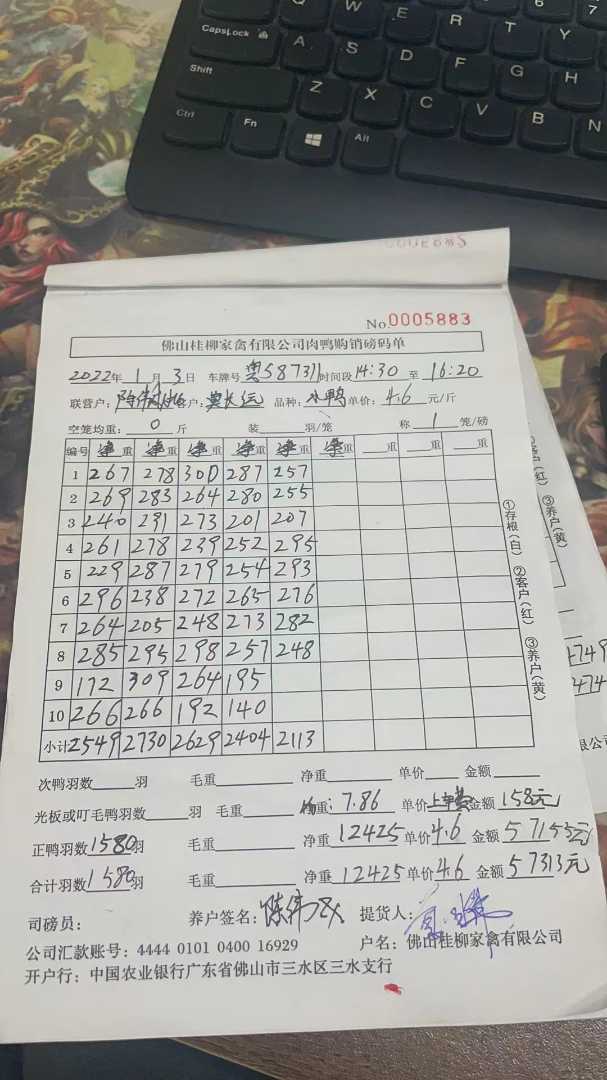 Q W E R T Y 6 7
CapsLock A S D F G H
Shift Z X C V B N
Ctrl Fn Alt
No.0005883
佛山桂柳家禽有限公司肉鸭购销磅码单
2022年 1 月 3 日 车牌号 粤S87311 时间段 14:30 至 16:20
联营户: 客户: 品种: 水鸭 单价: 4.6 元/斤
空笼均重: 0 斤 装 羽/笼 称 1 笼/磅
编号 净重 净重 净重 净重 净重 净重 重 重 重
1 267 278 300 287 257
2 269 283 264 280 255
3 240 291 273 201 207
4 261 278 239 252 295
5 229 287 279 254 293
6 296 238 272 265 276
7 264 205 248 273 282
8 285 295 298 257 248
9 172 309 264 195
10 266 266 192 140
小计 2549 2730 2629 2404 2113
①存根(白) ②客户(红) ③养户(黄)
次鸭羽数 羽 毛重 净重 单价 金额
光板或叮毛鸭羽数 羽 毛重 均重: 7.86 单价 上车费 金额 158元
正鸭羽数 1580 羽 毛重 净重 12425 单价 4.6 金额 57155元
合计羽数 1580 羽 毛重 净重 12425 单价 4.6 金额 57313元
司磅员: 养户签名: 提货人:
公司汇款账号: 4444 0101 0400 16929 户名: 佛山桂柳家禽有限公司
开户行: 中国农业银行广东省佛山市三水区三水支行
客户(红) ③养户(黄)
4749
474
限公司